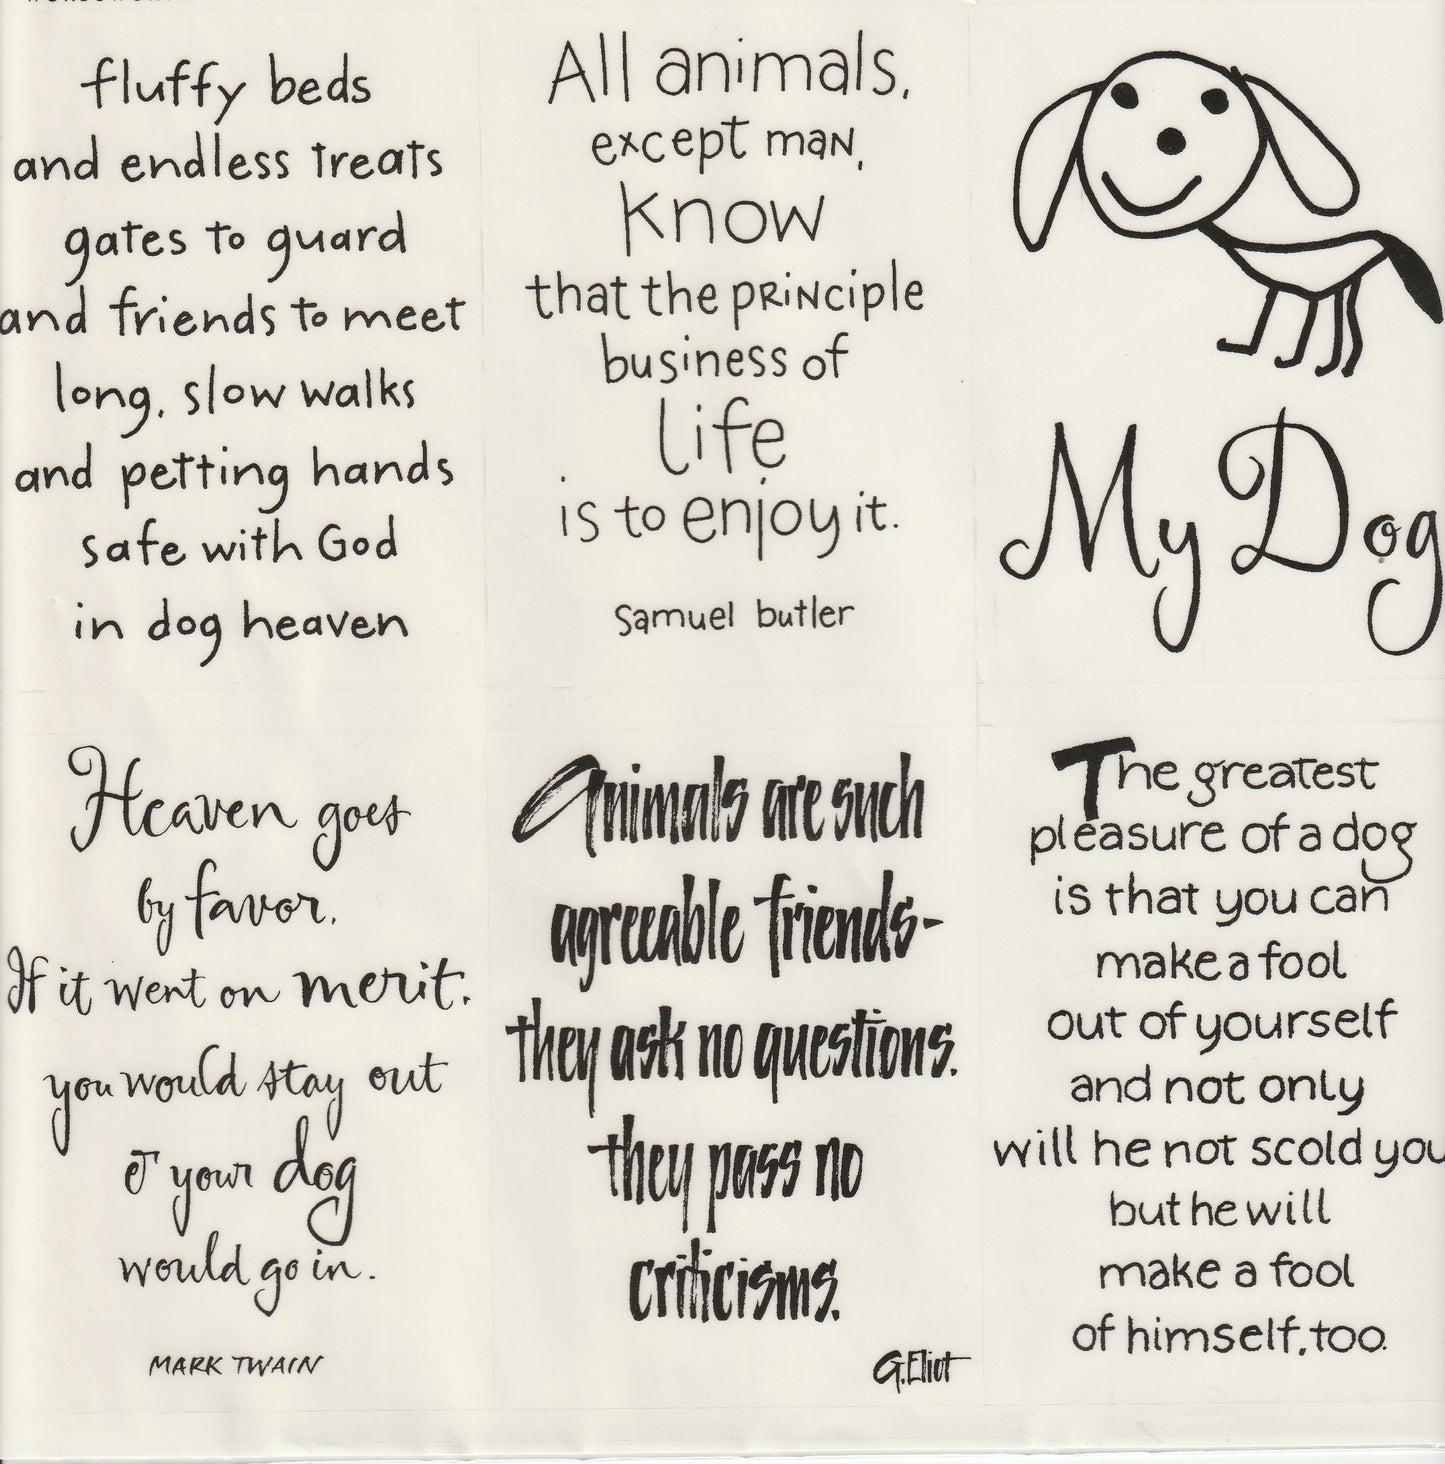 fluffy beds
and endless treats
gates to guard
and friends to meet
long, slow walks
and petting hands
safe with God
in dog heaven
All animals,
except man,
know
that the principle
business of
life
is to enjoy it.
samuel butler
My Dog
Heaven goes
by favor.
If it went on merit,
you would stay out
& your dog
would go in.
MARK TWAIN
Animals are such
agreeable friends-
they ask no questions,
they pass no
criticisms.
G. Eliot
The greatest
pleasure of a dog
is that you can
make a fool
out of yourself
and not only
will he not scold you
but he will
make a fool
of himself, too.